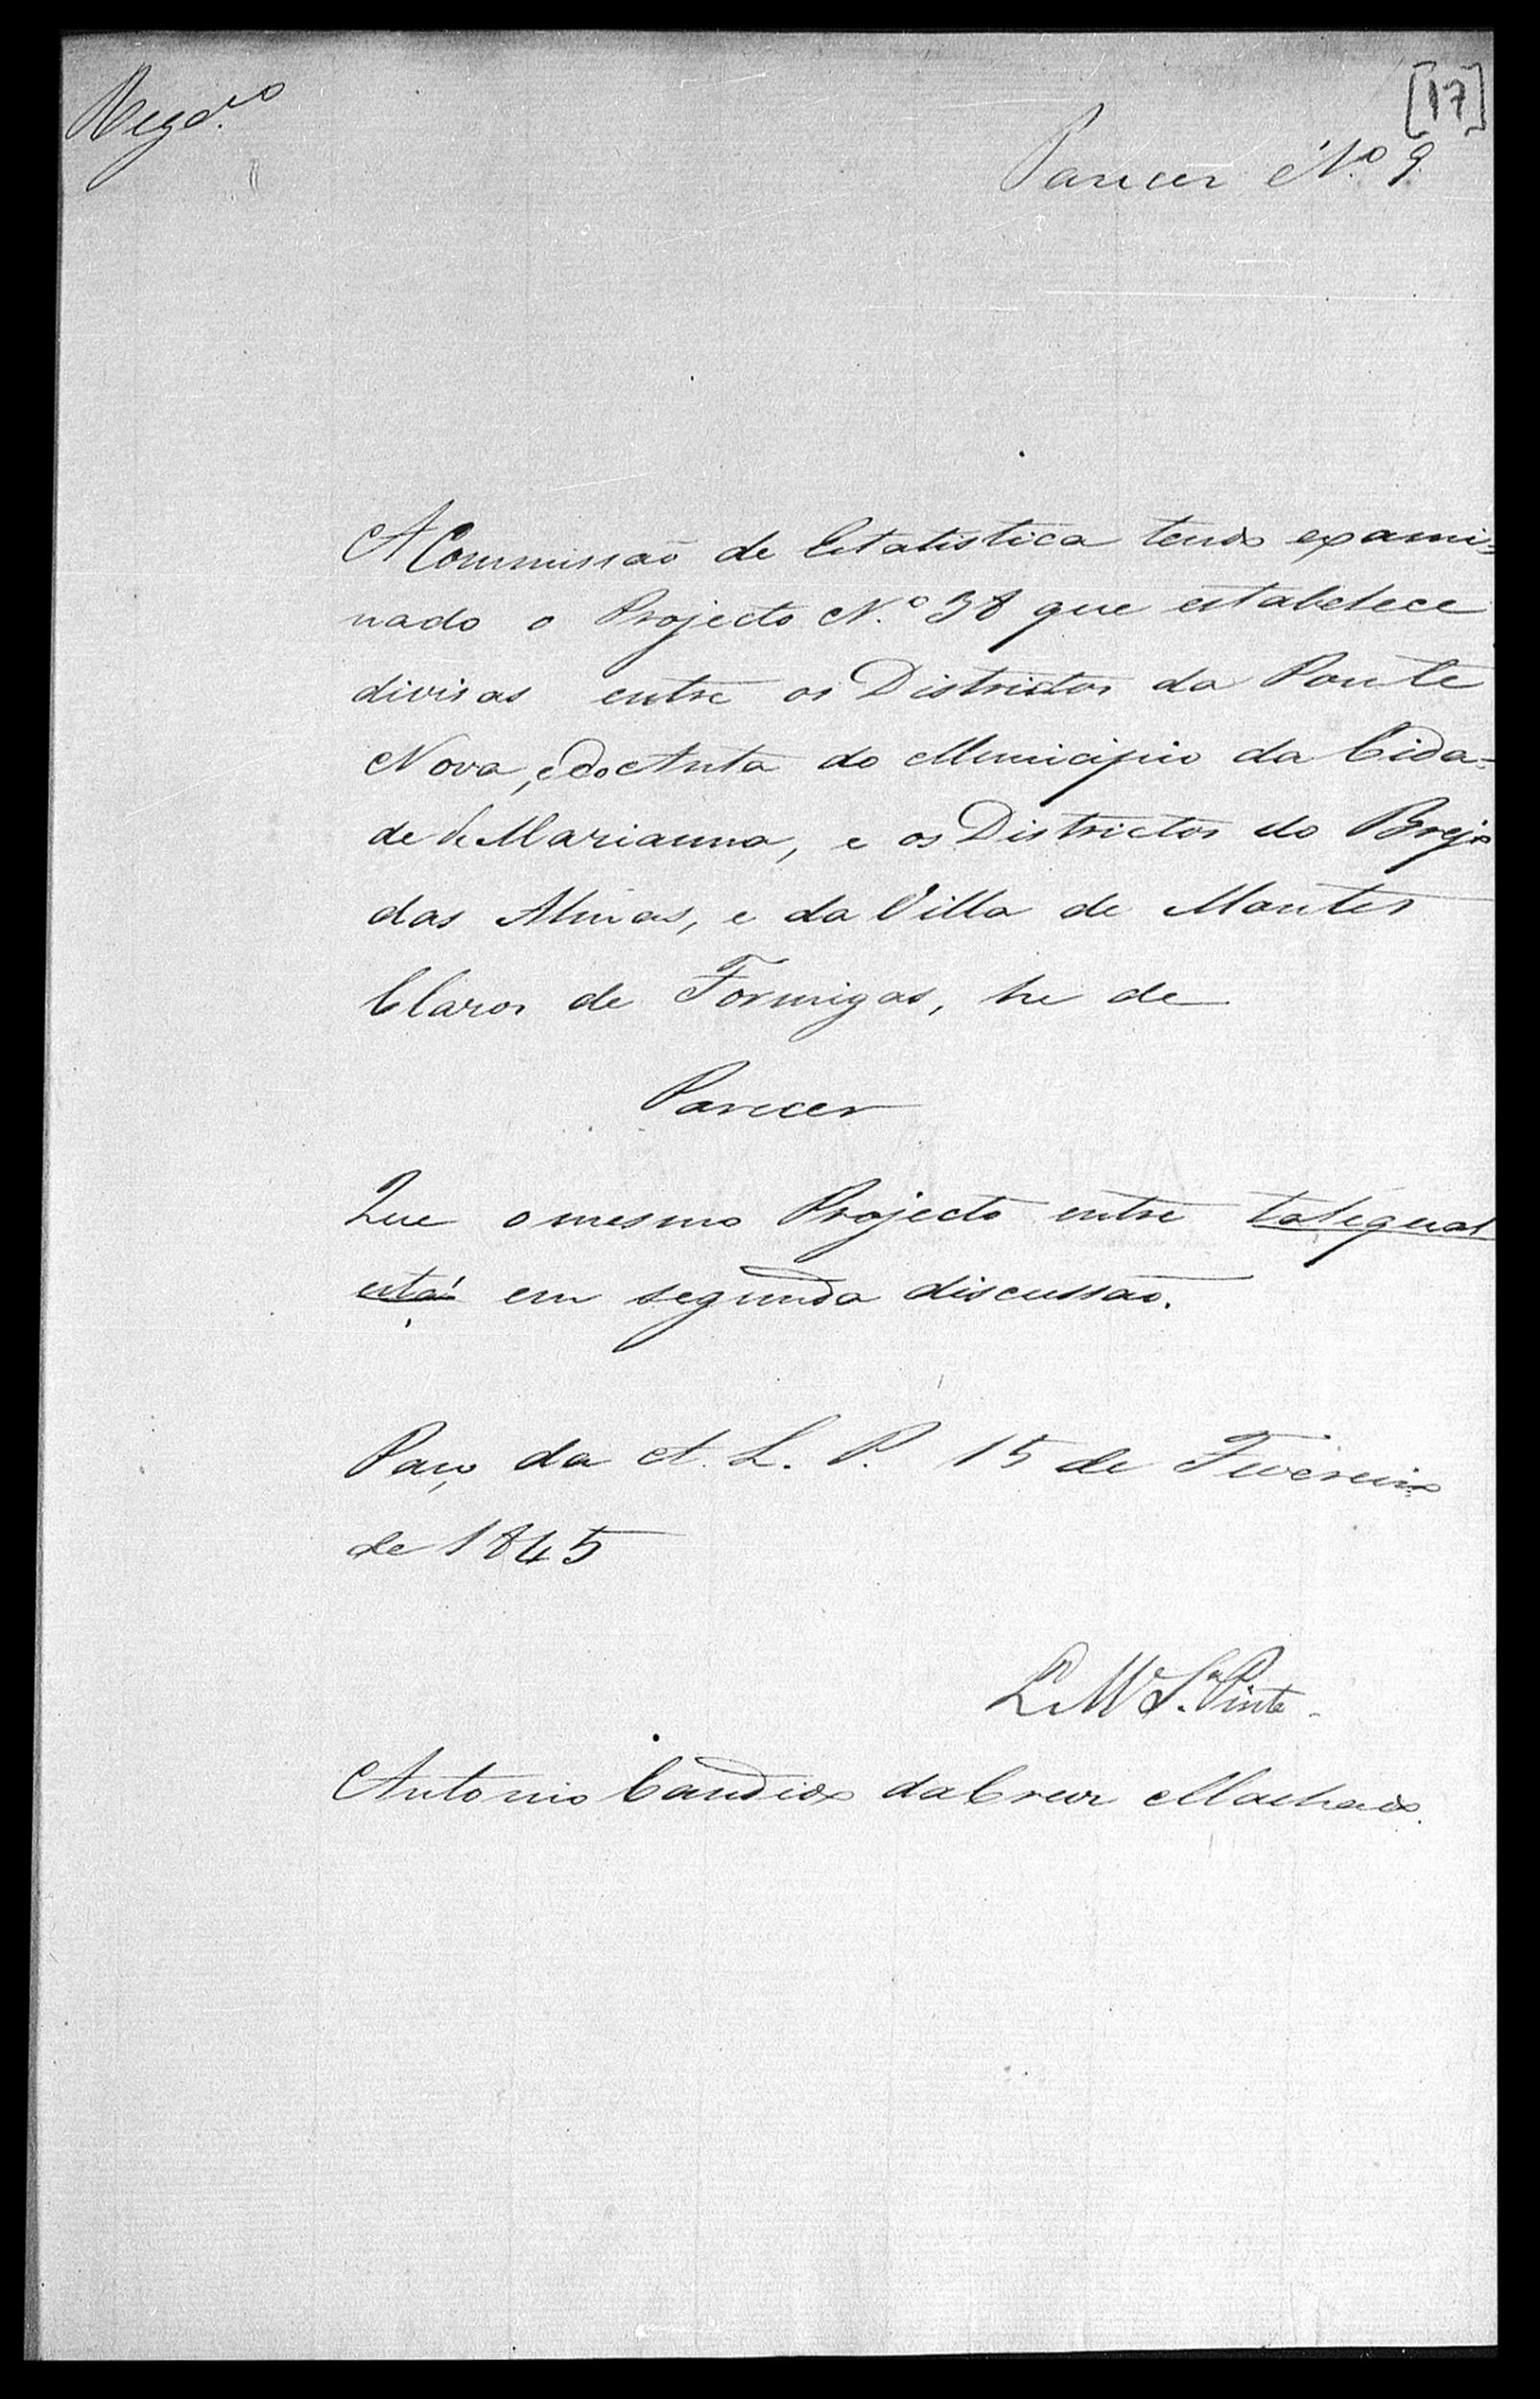 [17]
Parecer N.º 9
A Commissão de Estatistica tendo exami-
nado o Projecto N.º 38 que estabelece
divisas entre os Districtos da Ponte
Nova, e do Anta do Municipio da Cida-
de de Marianna, e os Districtos do Brejo
das Almas, e da Villa de Montes
Claros de Formigas, he de
Parecer
Que o mesmo Projecto entre tal e qual
está em segunda discussão.
Paço da A. L. P. 15 de Fevereiro
de 1845
Pinto
Antonio Candido da Cruz Machado.